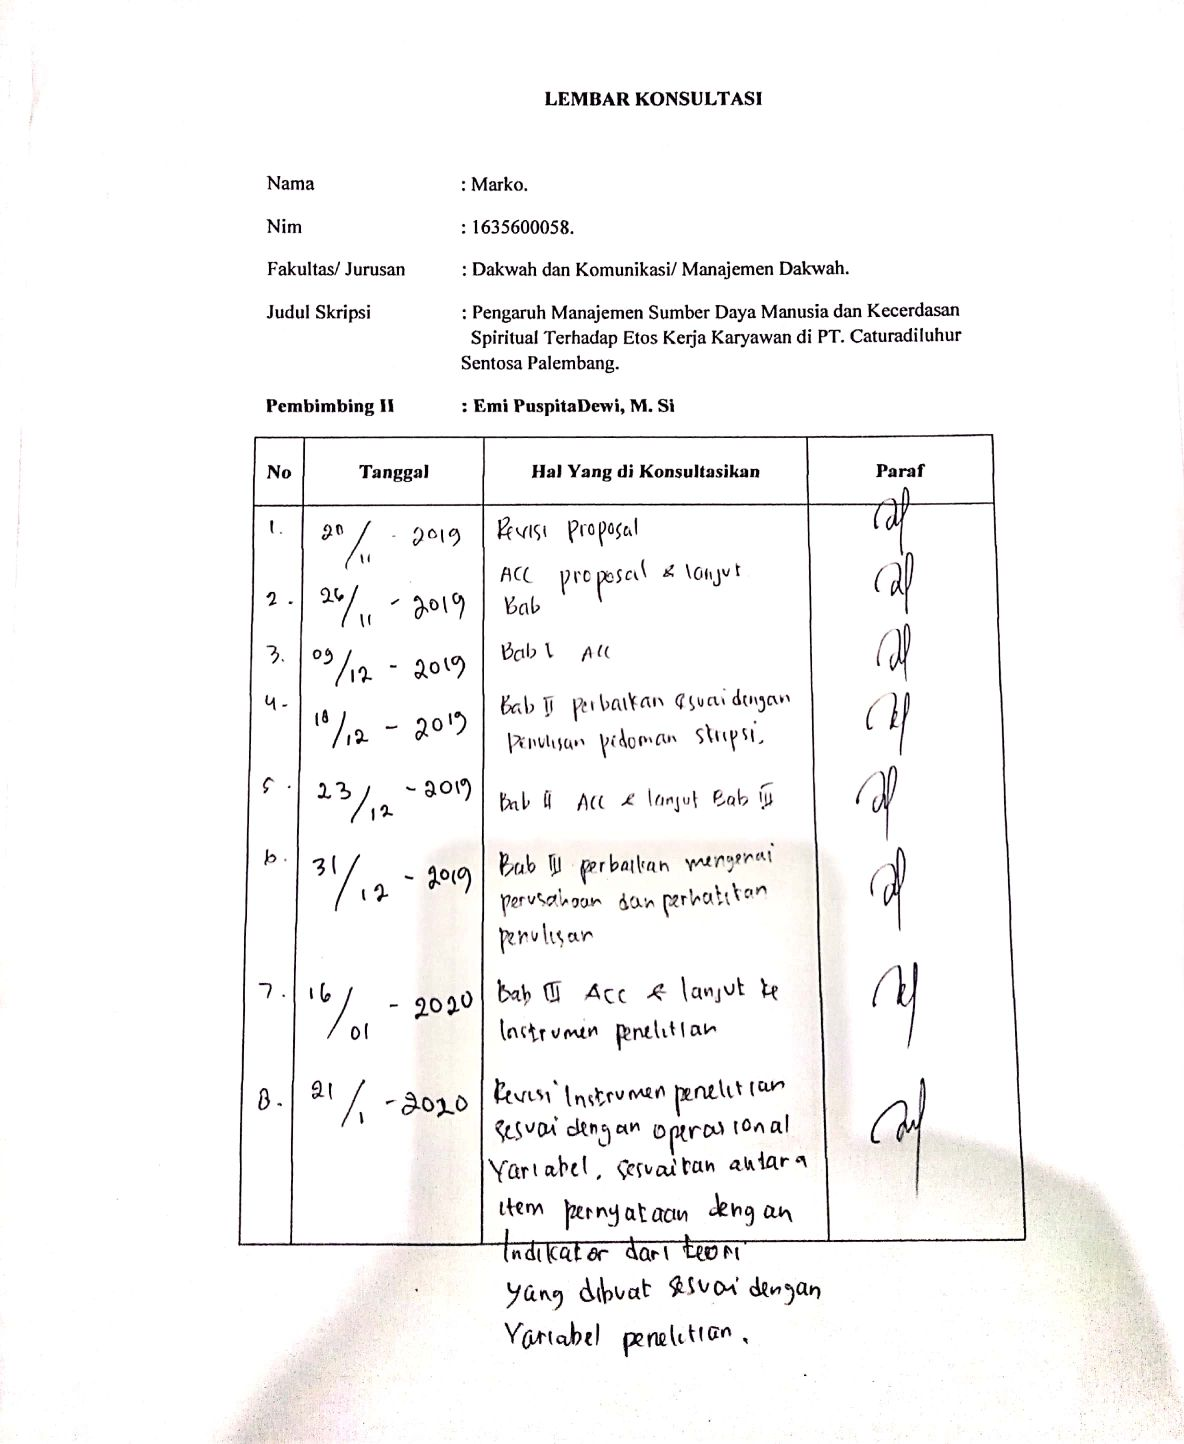 LEMBAR KONSULTASI
Nama : Marko.
Nim : 1635600058.
Fakultas/ Jurusan : Dakwah dan Komunikasi/ Manajemen Dakwah.
Judul Skripsi : Pengaruh Manajemen Sumber Daya Manusia dan Kecerdasan
Spiritual Terhadap Etos Kerja Karyawan di PT. Caturadiluhur
Sentosa Palembang.
Pembimbing II : Emi PuspitaDewi, M. Si
No Tanggal Hal Yang di Konsultasikan Paraf
1. 20/11 - 2019 Revisi Proposal
2. 26/11 - 2019 ACC proposal & lanjut
Bab
3. 09/12 - 2019 Bab I ACC
4. 18/12 - 2019 Bab II perbaikan sesuai dengan
penulisan pedoman skripsi.
5. 23/12 - 2019 Bab II ACC & lanjut Bab III
6. 31/12 - 2019 Bab III perbaikan mengenai
perusahaan dan perhatikan
penulisan
7. 16/01 - 2020 Bab III ACC & lanjut ke
Instrumen penelitian
8. 21/1 - 2020 Revisi Instrumen penelitian
sesuai dengan operasional
Variabel, sesuaikan antara
item pernyataan dengan
Indikator dari teori
yang dibuat sesuai dengan
Variabel penelitian.